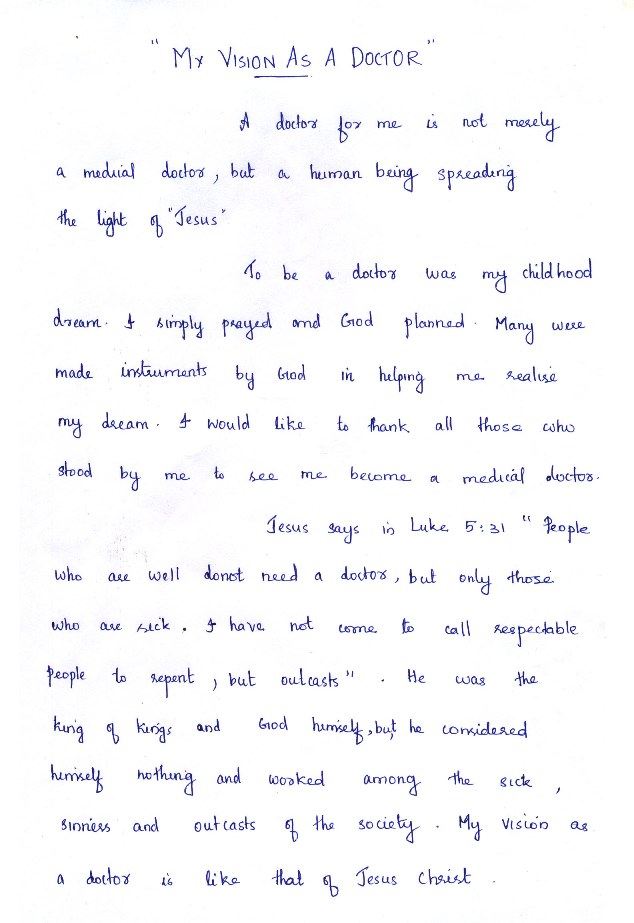 "My Vision As A Doctor"
A doctor for me is not merely
a medical doctor, but a human being spreading
the light of "Jesus"
To be a doctor was my childhood
dream. I simply prayed and God planned. Many were
made instruments by God in helping me realise
my dream. I would like to thank all those who
stood by me to see me become a medical doctor.
Jesus says in Luke 5:31 "People
who are well donot need a doctor, but only those
who are sick. I have not come to call respectable
people to repent, but outcasts". He was the
king of kings and God himself, but he considered
himself nothing and worked among the sick,
sinners and outcasts of the society. My vision as
a doctor is like that of Jesus Christ.